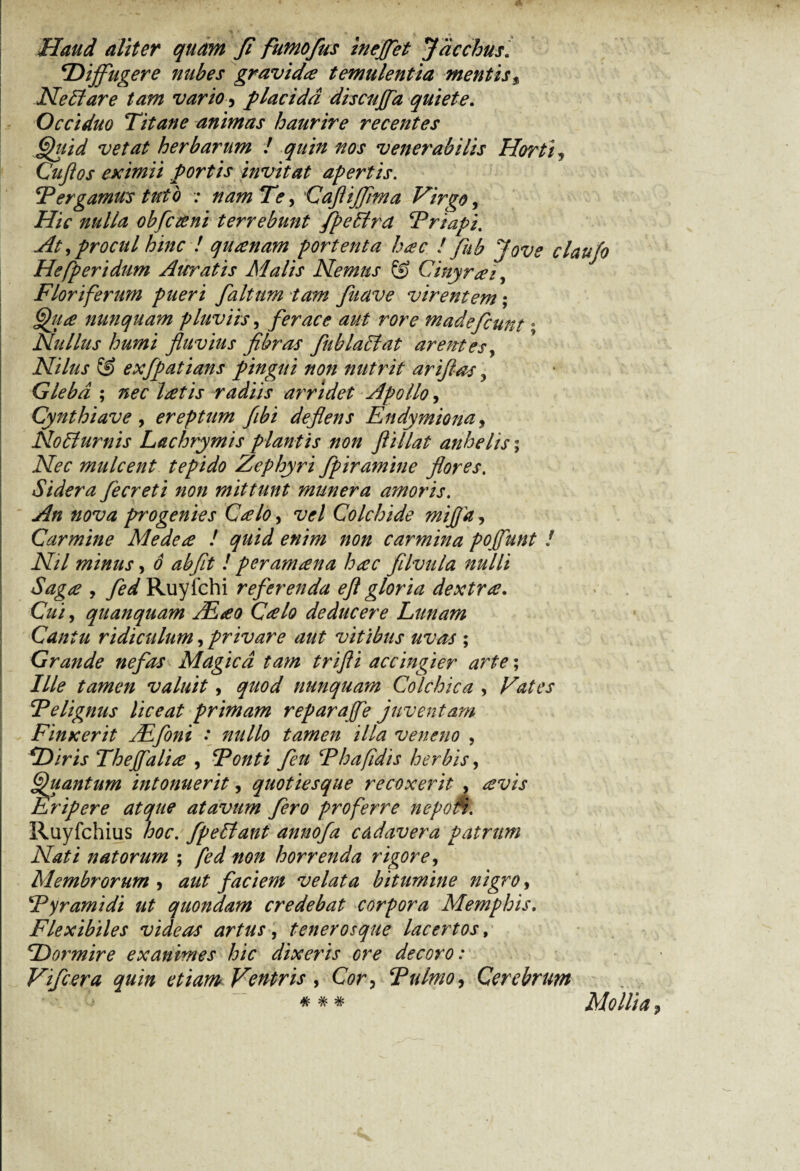 Haud aliter quam ſi fumoſus ineſſet Jacchus.
Diffugere nubes gravidæ temulentia mentis,
Nectare tam vario, placidâ discuſſa quiete.
Occiduo Titane animas haurire recentes
Quid vetat herbarum ! quin nos venerabilis Horti,
Cuſtos eximii portis invitat apertis.
Pergamus tutò : nam Te, Caſtiſſima Virgo,
Hic nulla obſcæni terrebunt ſpectra Priapi.
At, procul hinc ! quænam portenta hæc ! ſub Jove clauſo
Heſperidum Auratis Malis Nemus & Cinyræi,
Floriferum pueri ſaltum tam ſuave virentem ;
Quæ nunquam pluviis, ferace aut rore madeſcunt ;
Nullus humi fluvius fibras ſublactat arentes,
Nilus & exſpatians pingui non nutrit ariſtas,
Glebâ ; nec lætis radiis arridet Apollo,
Cynthiave, ereptum ſibi deflens Endymiona,
Nocturnis Lachrymis plantis non ſtillat anhelis ;
Nec mulcent tepido Zephyri ſpiramine flores.
Sidera ſecreti non mittunt munera amoris.
An nova progenies Cælo, vel Colchide miſſa,
Carmine Medeæ ! quid enim non carmina poſſunt !
Nil minus, ô abſit ! peramæna hæc ſilvula nulli
Sagæ , ſed Ruyſchi referenda eſt gloria dextræ.
Cui, quanquam Ææo Cælo deducere Lunam
Cantu ridiculum, privare aut vitibus uvas ;
Grande nefas Magicâ tam triſti accingier arte ;
Ille tamen valuit , quod nunquam Colchica , Vates
Pelignus liceat primam reparaſſe juventam
Finxerit Æſoni : nullo tamen illa veneno ,
Diris Theſſaliæ , Ponti ſeu Phaſidis herbis,
Quantum intonuerit, quotiesque recoxerit , ævis
Eripere atque atavum ſero proferre nepoti.
Ruyſchius hoc. ſpectant annoſa cadavera patrum
Nati natorum ; ſed non horrenda rigore,
Membrorum , aut faciem velata bitumine nigro,
Pyramidi ut quondam credebat corpora Memphis.
Flexibiles videas artus, tenerosque lacertos,
Dormire exanimes hic dixeris ore decoro :
Viſcera quin etiam Ventris , Cor, Pulmo, Cerebrum
* * *
Mollia,